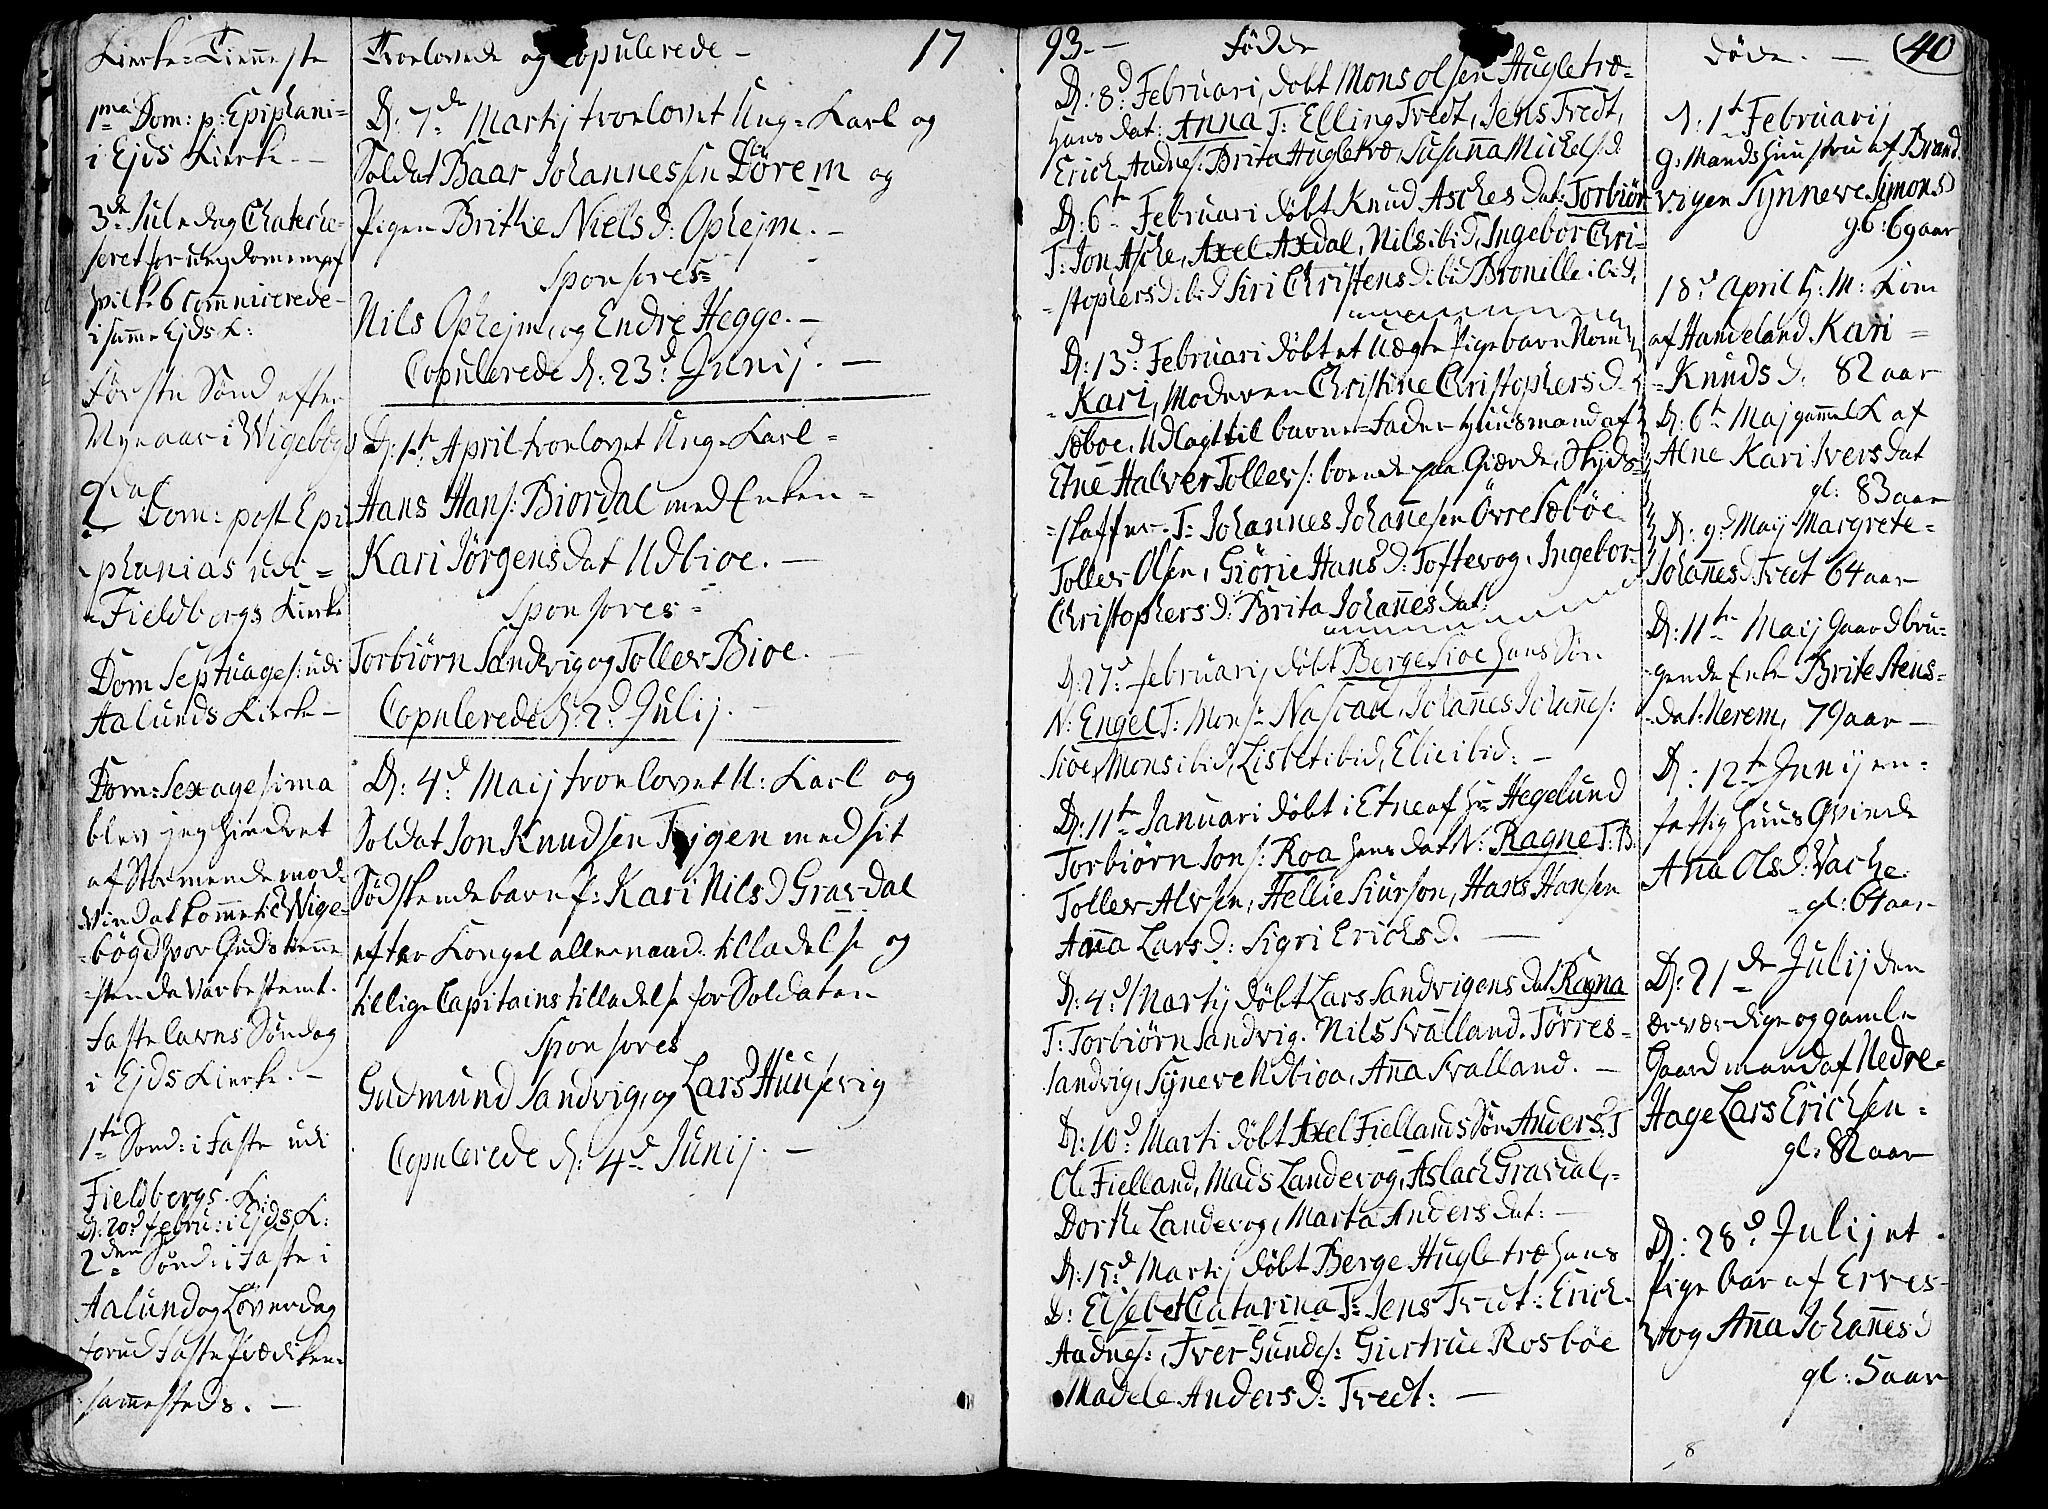 Kierke-Tieneste
1ma Dom: p: Epiphani=
i Ejds Kierke. -
3de Juledag Chateche=
seret for ungdommen af
6 Commnicerede
i samme Ejds K:
Første Sønd efter
Nyeaar i Wigebøgd
2da Dom: post Epi=
phanias udi =
Fieldbergs Kierke
Dom Septuages: udi
Aalunds Kierke -
Dom: Sexagesima
blev jeg hindret
af Stormende mod
Vind at komme til Wige=
=bøgd hvor Guds tienne
=sten da var bestemt.
Fastelavns Søndag
i Ejds Kierke. -
1te Sønd: i Faste udi
Fieldbergs K:
D: 20d Febru: i Ejds K:
2den Sønd: i Faste i
Aalund og Løverdag
forud Faste Prædiken
sammesteds. -
Troelovede og Copulerede - 17
D: 7de Martij troelovet Ung=Karl og
Soldat Baar Johannessen Dörem og
Pigen Brithe Niels D: Ophejm. -
Sponsores=
Nils Ophejm, og Endre Hegge. -
Copulerede d: 23d Junij. -
D: 1te April troelovet Ung=Karl =
Hans Hans: Biordal med Enken =
Kari Jørgens Dat Udbioe. -
Sponsores =
Torbiørn Sandvig og Tollev Bioe. -
Copulerede d: 2d Julij. -
D: 4d Maij troelovet U: Karl og
Soldat Jon Knudsen Tejgen med sit
Södskendebarn p: Kari Nils D Gravdal
efter Kongel allernaad. tilladelse og
tillige Capitains tilladelse for Soldaten
Sponsores
Gudmund Sandvig, og Lars Huusevig
Copulerede d: 4d Junij. -
93. - Fødde
D: 8d Februari, Döbt Mons olsen Hugletræ=
hans Dat: Anna T: Elling Tvedt, Jens Tvedt,
Erich Aadnes: Brita Hugletræ, Susanna Michels: D
D: 6te Februari Döbt Knud Asches Dat: Torbiör
T: Jon Asche, Axel Axdal, Nils ibid, Ingebor Chri=
=stophers D: ibid Siri Christens D: ibid Bronille ibid.
D: 13d Februari Döbt et Uægte Pigebarn Nom:
= Kari, Moderen Christine Christophers D.
Sæboe, Udlagt til barne=Fader Huusmand af
Etne Halver Tollevs: boende paa Gierde, Skyds=
=skaffer. T: Johannes Johannesen Övre Sæböe
Tollev Olsen, Giörie Hans D: Toftevog, Ingebor=
Christophers D: Brita Johannes Dat:
D: 27d Februarij Döbt Berge Sioe hans Sön
N: Engel T: Mons Johannes Johannes:
Sioe, Mons ibid, Lisbet ibid, Elie ibid: -
D: 11te Januari Döbt i Etne af Hr Hegelund
Torbiörn Jons: Roa hans Dat N: Ragne T: B.
Tollev Alvsen, Hellie Siurson, Hans Hansen
Anna Lars D: Sigri Erichs D. -
D: 4d Martij Döbt Lars Sandvigens Dat Ragna
T: Torbiörn Sandvig. Nils Svalland. Törres=
Sandvig, Syneve Udbioa, Anna Svalland. -
D: 10d Marti Döbt Axel Fiellands Sön Anders: T
Ole Fielland, Mads Landevog, Aslach Gravdal, =
Dorthe Landevog, Marta Anders Dat: -
D: 15d Martij Döbt Berge Hugletræ hans
D: Elsebet Catarina T: Jens Tvedt: Erich
Aadnes:, Iver Gunds: Giertrue Rosböe
Madele Anders D: Tvedt: -
Döde. - 40
D: 1te Februarij
g: Mands Huustru af Brand
vigen Synneve Simons D
gl: 69 aar
18d April H: M: Kone
af Handeland Kari =
=Knuds D: 82 aar
D: 6te Maj gammel K af
Alne Kari Ivers Dat
gl: 83 aar
D: 9d Maij Margrete=
Johannes D Tvedt 64 aar
D: 11te Maij Gaardbru=
gende Enke Brite Stens=
=dat: Nerem, 79 aar -
D: 12te Junij en=
fattig Huus Qvinde
Anna Ols D: Vache
gl: 64 aar
D: 21de Julij den
ærværdige og gamle
Gaardmand af Nedre=
Hage Lars Erichsen =
gl: 82 aar
D: 28d Julij et
Pige bar af Erves=
vog Anna Johannes D
gl: 5 aar
8